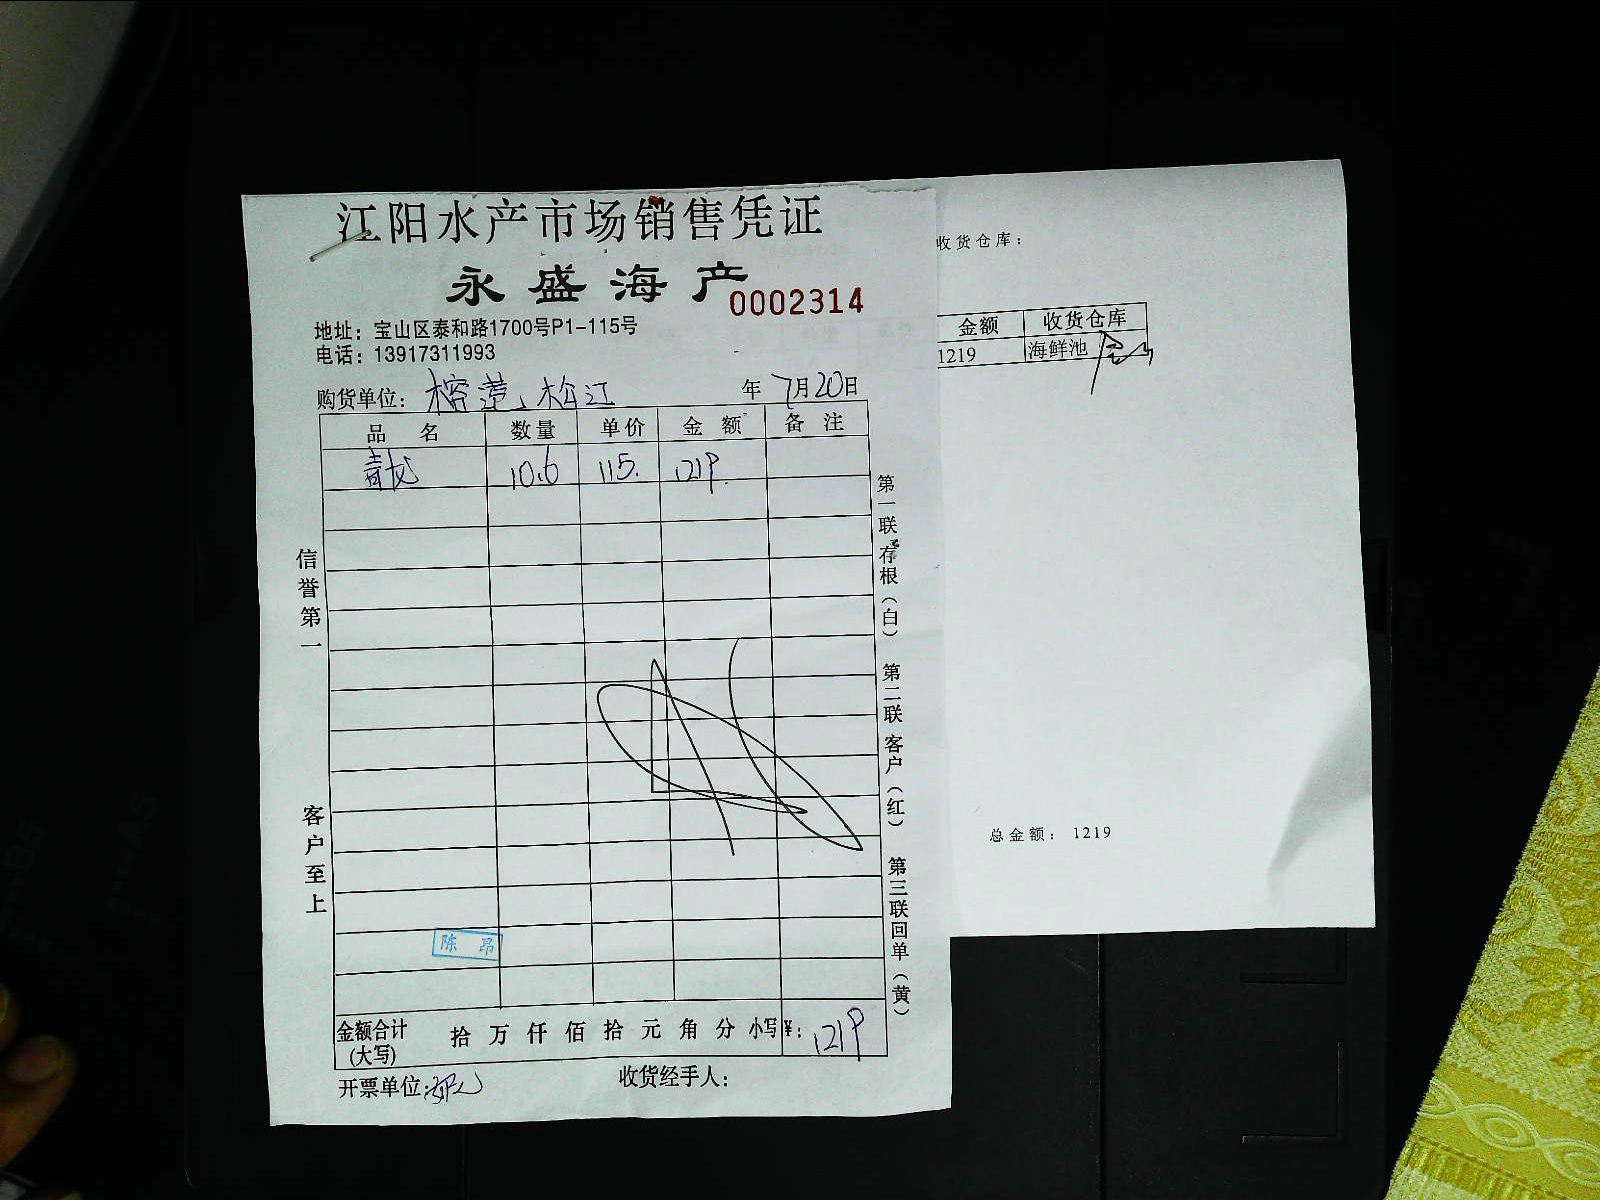 江阳水产市场销售凭证
永盛海产
0002314
地址：宝山区泰和路1700号P1-115号
电话：13917311993
购货单位： 松江 年 7月20日
品 名 数量 单价 金 额 备 注
青龙 10.6 115. 1219.
信誉第一
客户至上
第一联存根（白） 第二联客户（红） 第三联回单（黄）
陈 昂
金额合计 拾 万 仟 佰 拾 元 角 分 小写¥： 1219
(大写)
开票单位： 收货经手人：
收货仓库：
金额 收货仓库
1219 海鲜池
总金额： 1219